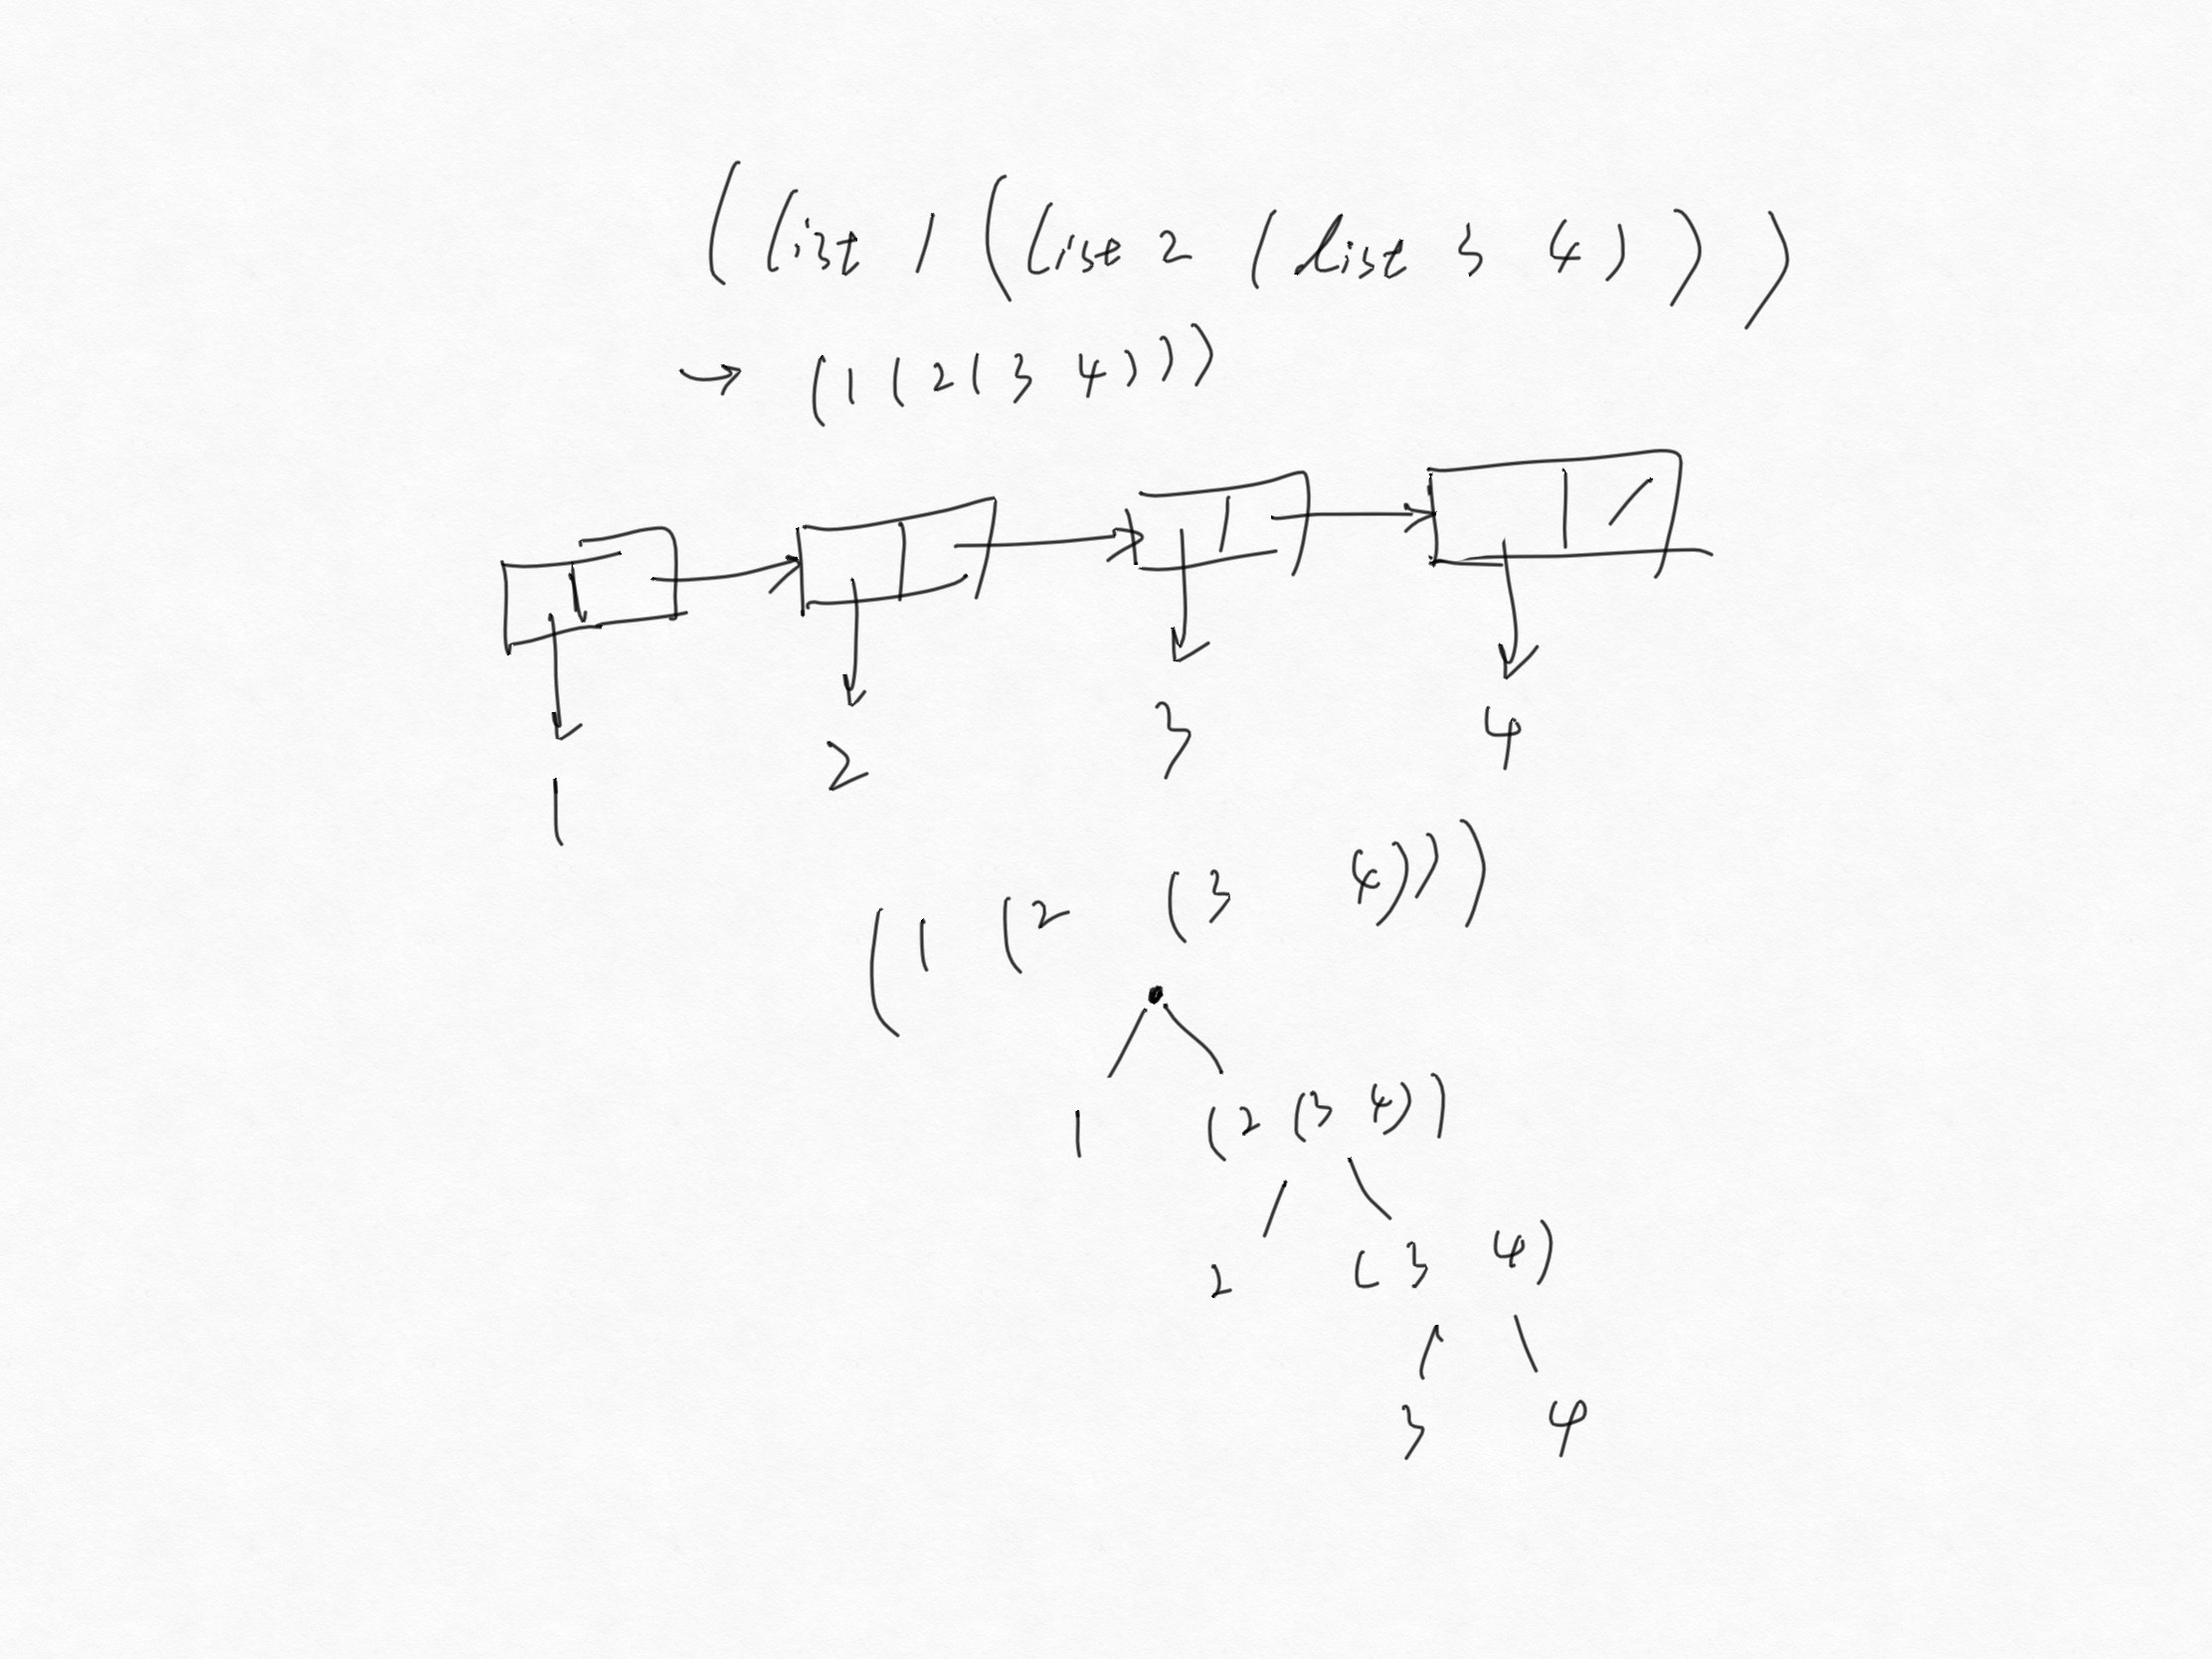 (list 1 (list 2 (list 3 4)))
→ (1 (2 (3 4)))
1 2 3 4
(1 (2 (3 4)))
1 (2 (3 4))
2 (3 4)
3 4